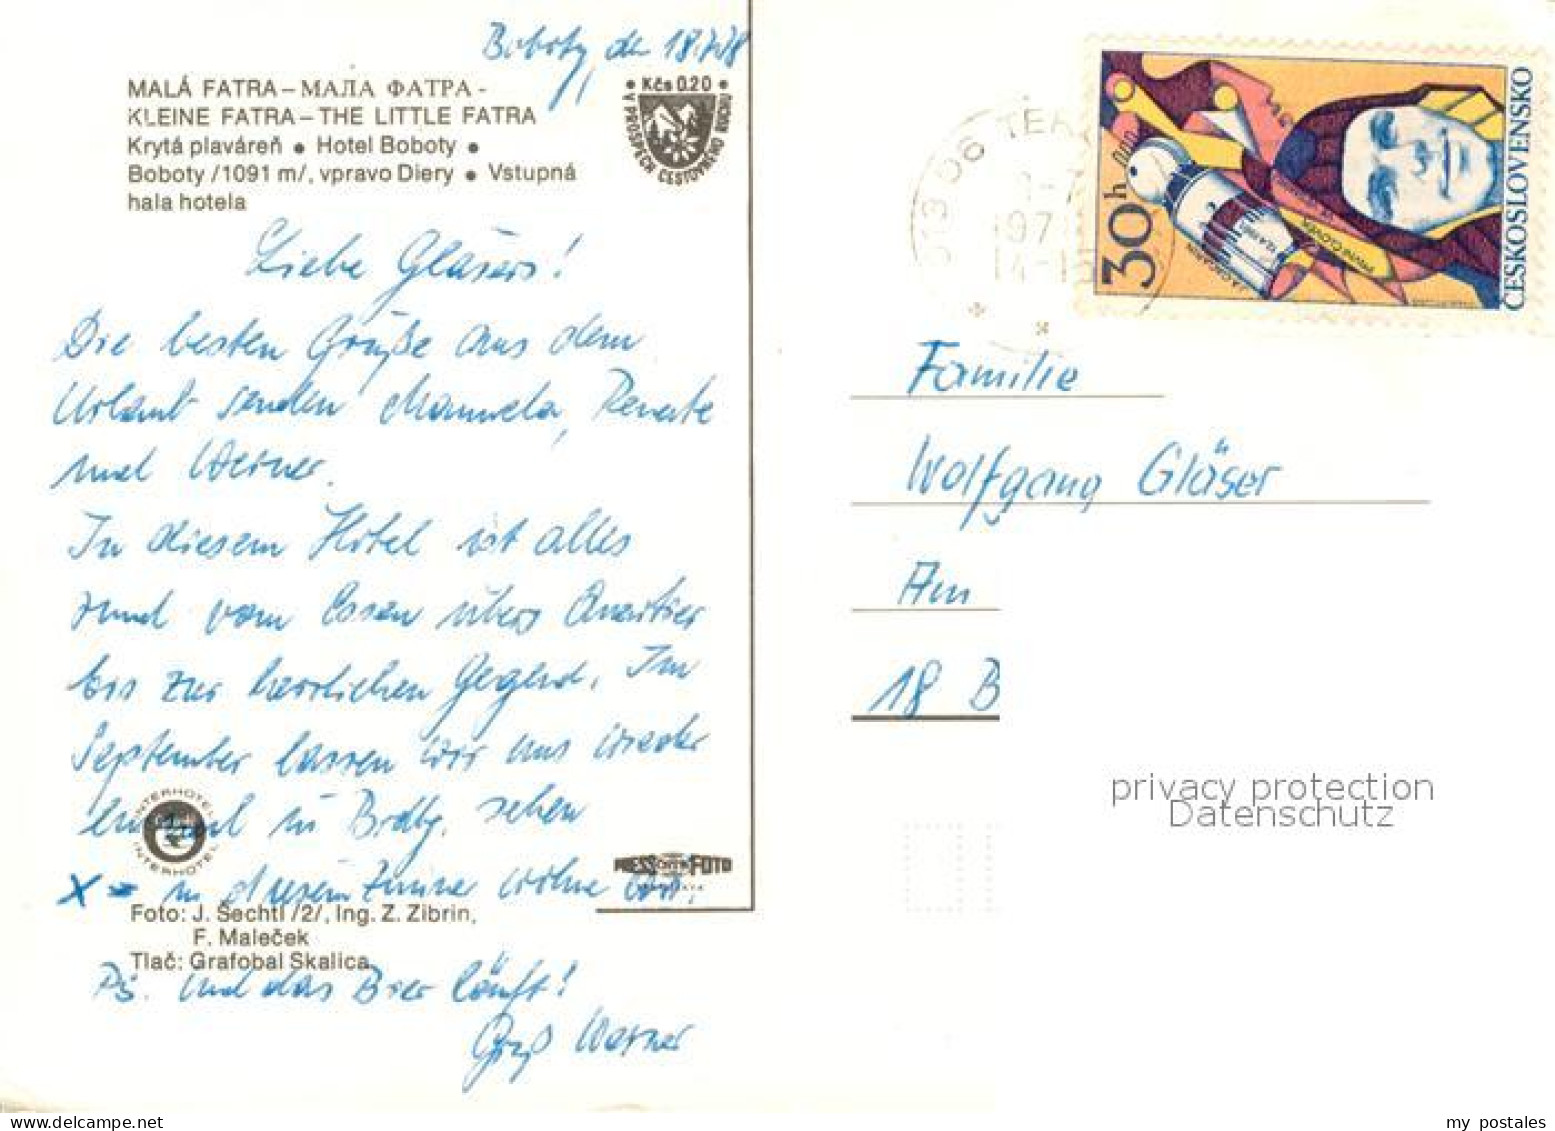 Boboty, den 18.7.78
MALÁ FATRA – МАЛА ФАТРА -
KLEINE FATRA – THE LITTLE FATRA
Krytá plaváreň • Hotel Boboty •
Boboty /1091 m/, vpravo Diery • Vstupná
hala hotela
• Kčs 0.20 •
V PROSPECH CESTOVNÉHO RUCHU
Liebe Gläsers!
Die besten Grüße aus dem
Urlaub senden Manuela, Renate
und Werner.
In diesem Hotel ist alles
rund vom Essen übers Quartier
bis zur herrlichen Gegend. Im
September lassen wir uns wieder
einmal in Brdbg. sehen
X - in diesem Zimmer wohnen wir.
INTERHOTEL
INTERHOTEL
PRESSFOTO
Foto: J. Šechtl /2/, Ing. Z. Zibrin,
F. Maleček
Tlač: Grafobal Skalica
Ps. Und das Bier läuft!
Gruß Werner
013 06 TER
197
14-15
30h
ČESKOSLOVENSKO
Familie
Wolfgang Gläser
Am
18 B
privacy protection
Datenschutz
my postales